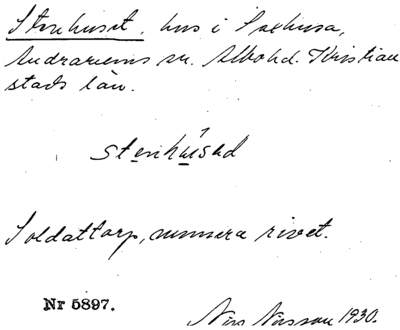 Stenhuset, hus i Saxhusa,
Andrarums sn. Albo hd. Kristian
stads län.
stenhúsəd
Soldattorp, numera rivet.
Nr 5897.
Nils Nilsson 1930.